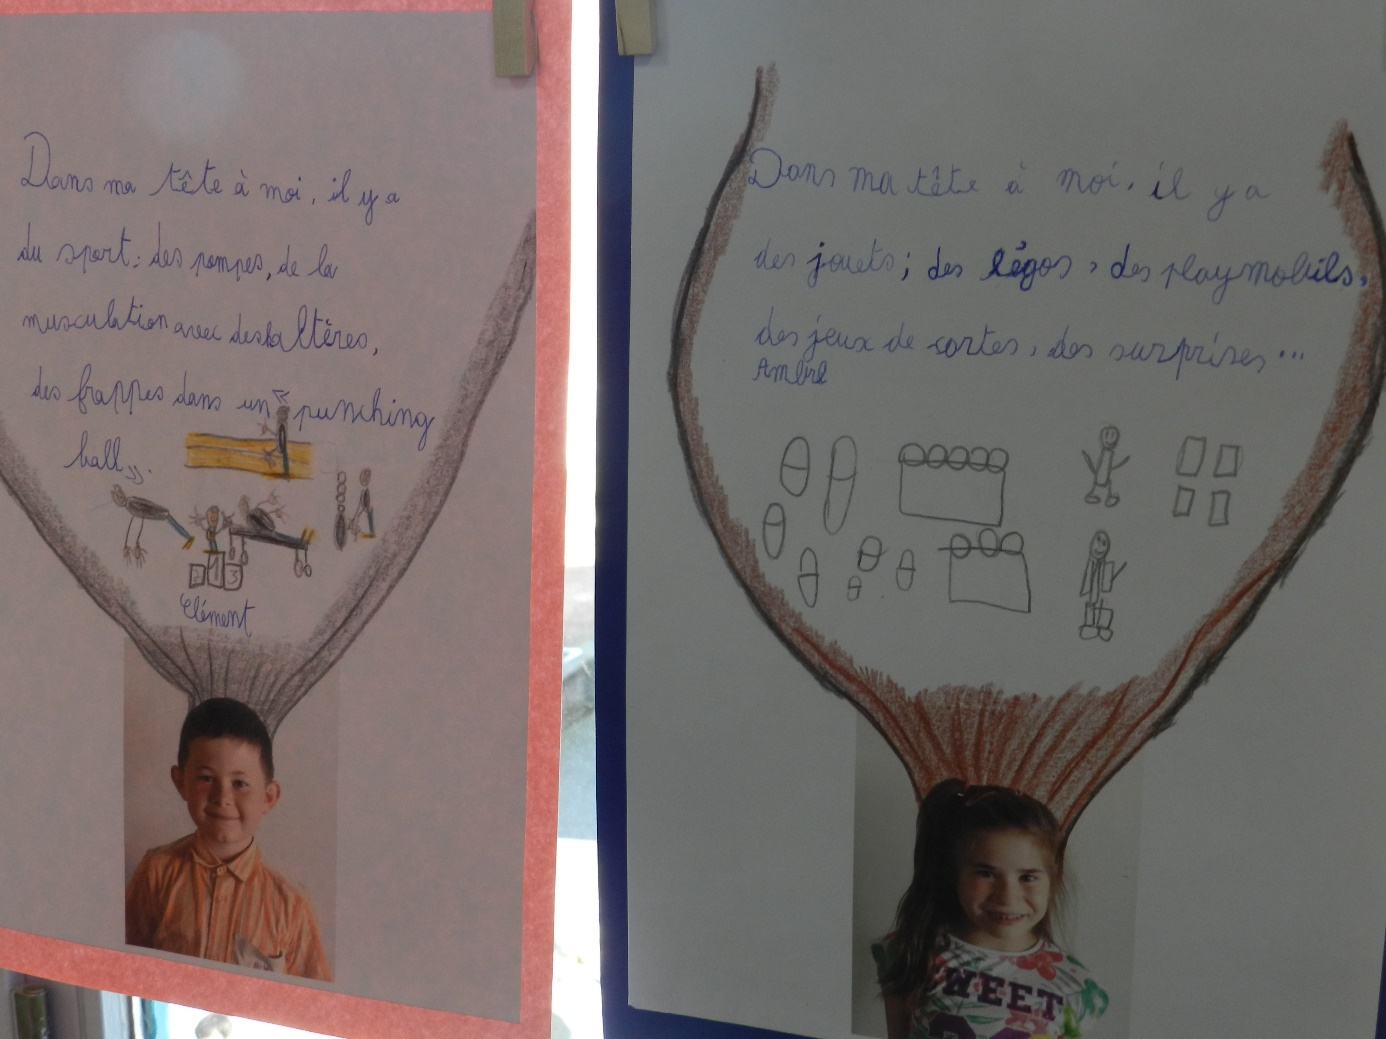 Dans ma tête à moi, il y a
du sport : des pompes, de la
musculation avec des haltères,
des frappes dans un punching
ball.
2 1 3
Clément
Dans ma tête à moi, il y a
des jouets ; des légos, des playmobils,
des jeux de cartes, des surprises...
Ambre
WEET